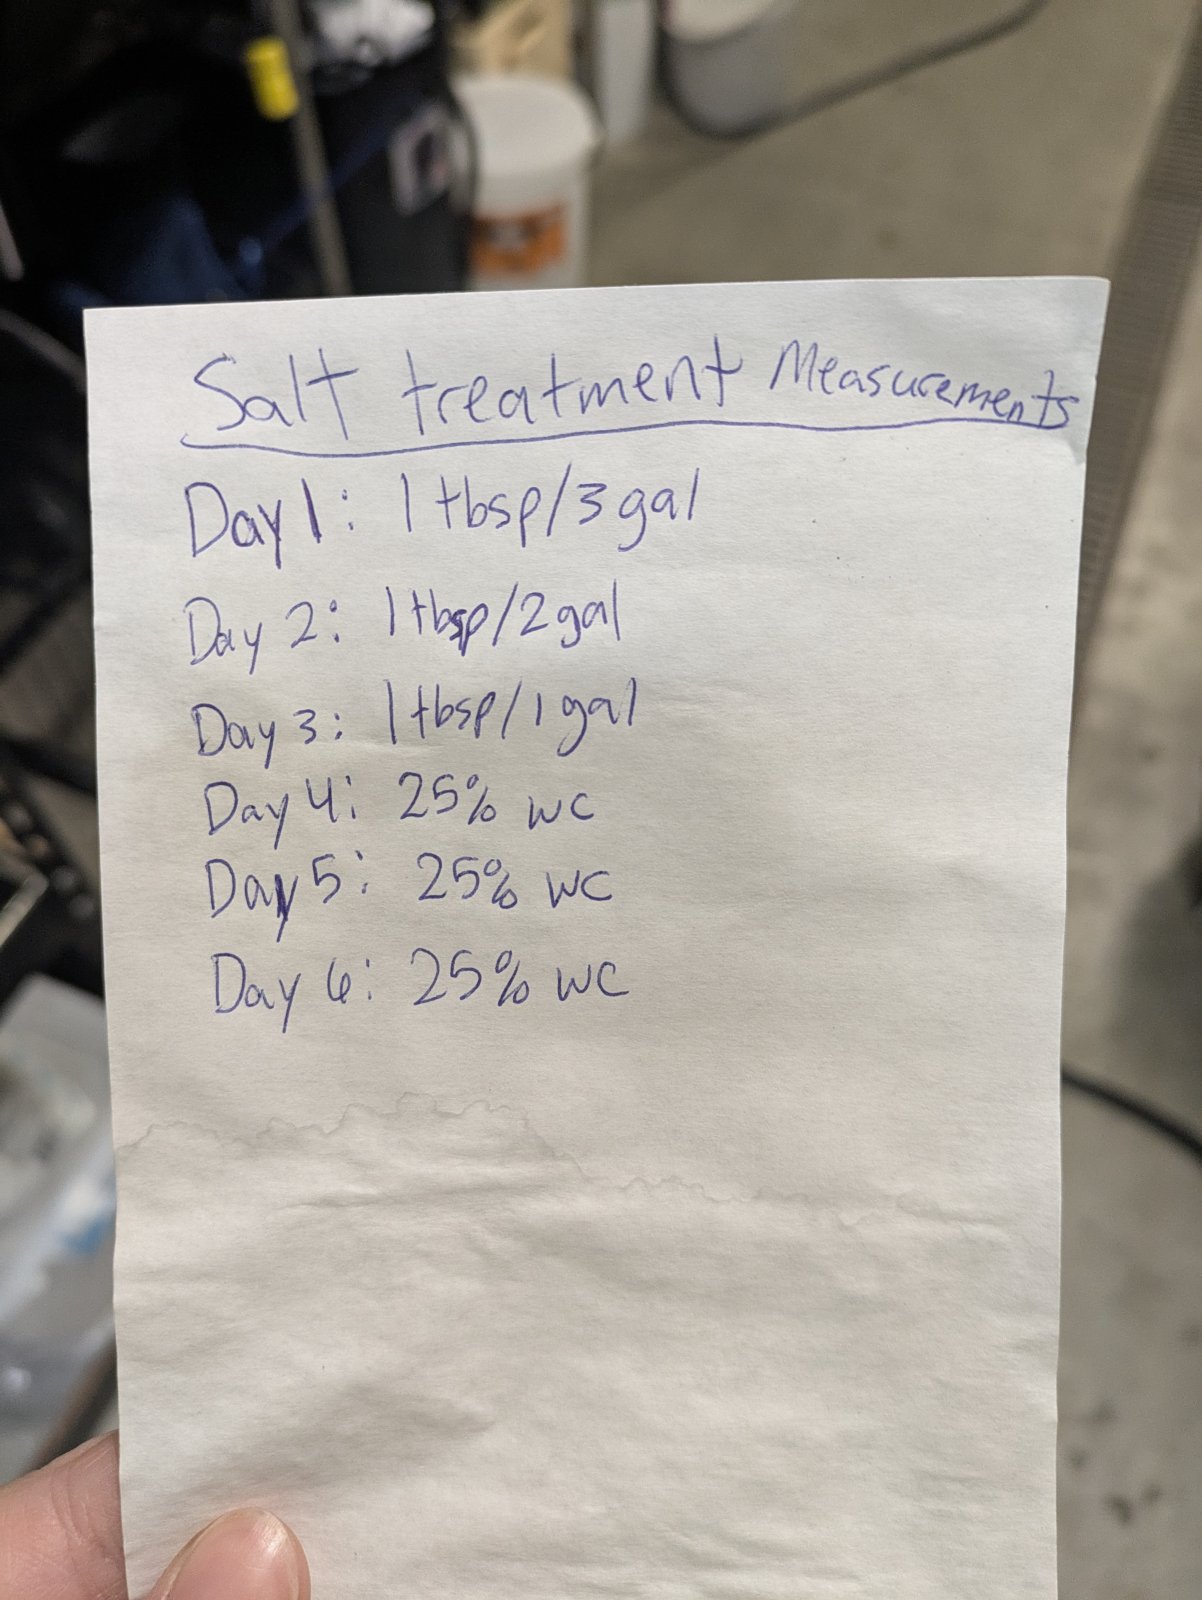 Salt treatment Measurements
Day 1: 1 tbsp/3 gal
Day 2: 1 tbsp/2 gal
Day 3: 1 tbsp/1 gal
Day 4: 25% WC
Day 5: 25% WC
Day 6: 25% WC